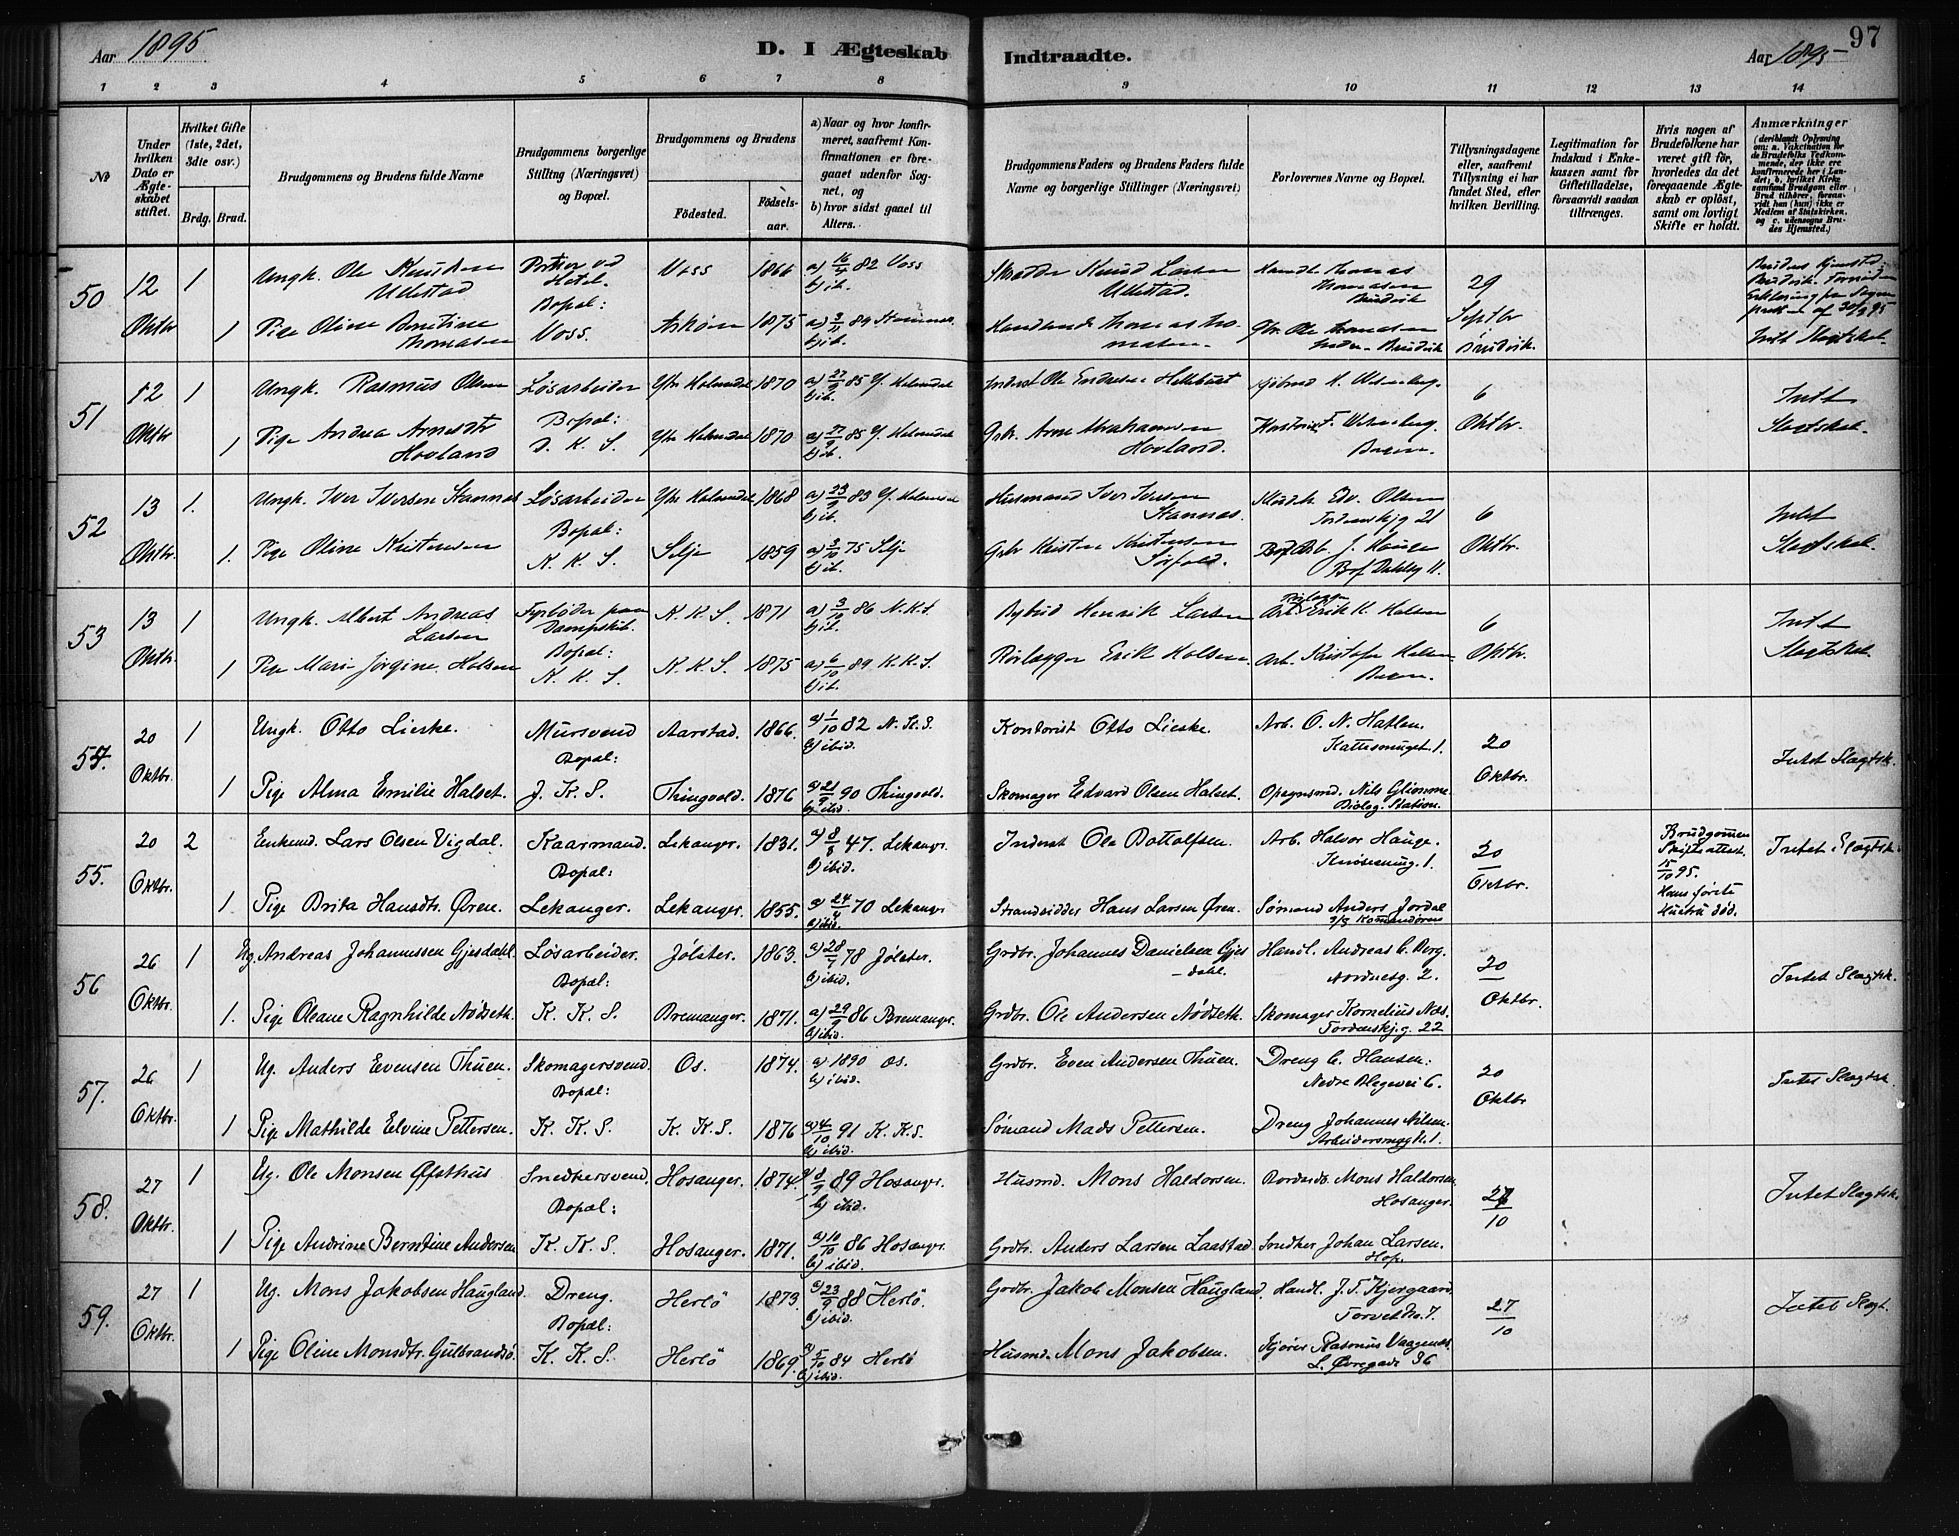 Aar 1895
D. I Ægteskab
Indtraadte.
Aar 1895
97
1 2 3 4 5 6 7 8 9 10 11 12 13 14
No
Under hvilken Dato er Ægteskabet stiftet.
Hvilket Gifte (1ste, 2det, 3die osv.)
Brdg. Brud.
Brudgommens og Brudens fulde Navne
Brudgommens borgerlige Stilling (Næringsvei) og Bopæl.
Brudgommens og Brudens
Fødested.
Fødselsaar.
a) Naar og hvor Konfirmeret, saafremt Konfirmationen er foregaaet udenfor Sognet, og
b) hvor sidst gaaet til Alters.
Brudgommens Faders og Brudens Faders fulde Navne og borgerlige Stillinger (Næringsvei)
Forlovernes Navne og Bopæl.
Tillysningsdagene eller, saafremt Tillysning ei har fundet Sted, efter hvilken Bevilling.
Legitimation for Indskud i Enkekassen samt for Giftetilladelse, forsaavidt saadan tiltrænges.
Hvis nogen af Brudefolkene har været gift før, hvorledes da det foregaaende Ægteskab er opløst, samt om lovligt Skifte er holdt.
Anmærkninger
(deriblandt Oplysning om: a. Vakcination for de Brudefolks Vedkommende, der ikke ere konfirmerede her i Landet; b. hvilket Kirkesamfund Brudgom eller Brud tilhører, forsaavidt han (hun) ikke er Medlem af Statskirken, og c. udensogns Brudes Hjemsted.)
50 12 Oktbr 1 Ungk. Ole Knudsen Ullestad Portier ved Hotel. Voss 1866 a) 16/4 82 Voss b) ib. Knud Larsen Ullestad. Thomas Thomasen Bruvik 29 Septbr Bruvik.
1 Pige Oline Berntine Thomasen Bopæl: Voss. Askøen 1875 a) 89 b) ib. Gbr. Ole Thomasen Bruvik Intet Slægtskab.
51 12 Oktbr 1 Ungk. Rasmus Olsen Løsarbeider Ytre Holmedal 1870 a) 27/9 85 Y. Holmedal b) ib. Inderst Ole Endresen 6 Oktbr. Intet Slægtskab.
1 Pige Andrea Arnesdtr Hovland Bopæl: D. K. S. Ytre Holmedal 1870 a) 27/9 85 Y. Holmedal b) ib. Gbr. Arne Abrahamsen Hovland. Bergen.
52 13 Oktbr. 1. Ungk. Iver Iversen Stannes Løsarbeider Ytre Holmedal 1868 a) 23/9 83 Y. Holmedal b) ib. Husmand Iver Iversen Stannes. Edv. Olsen Tordenskj.g 21 6 Oktbr. Intet Slægtskab.
1. Pige Oline Kristensen Bopæl: K. K. S. Selje 1859 a) 3/10 75 Selje b) ib. Gbr Kristen Kristensen J. Hauge
53 13 Oktbr. 1 Ungk. Albert Andreas Larsen Fyrbøder paa Dampskib. N. K. S. 1871 a) 3/10 86 N. K. S. b) ib. Henrik Larsen Rørlægger Erik K. Holsen 6 Oktbr. Intet Slægtskab.
1 Pige Marie Jørgine Holsen Bopæl: K. K. S. K. K. S. 1875 a) 6/10 89 K. K. S. b) ib. Rørlægger Erik Holsen Arb. Kristofer Holsen. Bergen.
54. 20 Oktbr. 1 Ungk. Otto Lieske. Mursvend Aarstad. 1866. a) 1/10 82 N. K. S. b) ibid. Kontorist Otto Lieske. Arb. O. N. Hatlen. Kattesmuget 1. 20 Oktbr. Intet Slægtsk.
1 Pige Alma Emilie Halset. Bopæl: J. K. S. Thingvold. 1876 a) 21/9 90 Thingvold. b) ibid. Skomager Edvard Olsen Halset. Opsynsmd. Nils Glimme Biolog. Station.
55. 20 Oktbr. 2 Enkemd. Lars Olsen Vigdal. Kaarmand. Lekanger. 1831. a) 8/8 47. Lekanger b) ibid. Inderst Ole Bottolfsen. Arb. Halvor Hauge. Knøsesmug. 1. 20 Oktbr. Brudgommen Skifteattest. 15/10 95. Hans første Hustru død. Intet Slægtsk.
1 Pige Brita Hansdtr. Øren. Bopæl: Lekanger. Lekanger. 1855. a) 24/4 70 Lekanger b) ibid. Strandsidder Hans Larsen Øren. Sømand Anders Jordal
56 26 Oktbr. 1 Ug. Andreas Johannessen Gjesdahl. Løsarbeider. Jølster. 1863. a) 28/7 78 Jølster. b) ibid. Grdbr. Johannes Danielsen Gjesdahl. Handl. Andreas C. Berg. Nordnesg. 2. 20 Oktbr. Intet Slægtsk.
1. Pige Oleane Ragnhilde Nødseth. Bopæl: K. K. S. Bremanger. 1871. a) 29/9 86 Bremanger. b) ibid. Grdbr. Ole Andersen Nødseth. Skomager Kornelius Næs. Tordenskj.g. 22
57. 26 Oktbr. 1 Ug. Anders Evensen Thuen. Skomagersvend. Os. 1874. a) 1890 Os. b) ibid. Grdbr. Even Andersen Thuen. Dreng C. Hansen. Nedre Blegevei 6. 20 Oktbr Intet Slægtsk.
1 Pige Mathilde Elvine Pettersen. Bopæl: K. K. S. K. K. S. 1876 a) 4/10 91 K. K. S. b) ibid. Sømand Mads Pettersen. Dreng Johannes Nilsen.
58. 27 Oktbr. 1 Ug. Ole Monsen Øfsthus Snedkersvend. Hosanger. 1874. a) 8/9 89 Hosanger. b) ibid. Husmd. Mons Haldorsen. Mons Haldorsen Hosanger. 27/10 Intet Slægtsk.
1 Pige Andrine Berntine Andersen Bopæl: K. K. S. Hosanger. 1871. a) 10/10 86 Hosanger. b) ibid. Grdbr. Anders Larsen Laastad. Snedker Johan Larsen. Hop.
59. 27 Oktbr. 1 Ug. Mons Jakobsen Haugland. Dreng. Herlö 1873. a) 23/9 88 Herlö. b) ibid. Grdbr. Jakob Monsen Haugland. Handl. J. T. Kjergaard. Torvet No. 7. 27/10 Intet Slægt.
1 Pige Oline Monsdtr. Gulbrandsö. Bopæl: K. K. S. Herlö 1869. a) 5/10 84 Herlö b) ibid. Husmd. Mons Jakobsen. Kjører Rasmus Vaagenæs. L. Øvregade 36